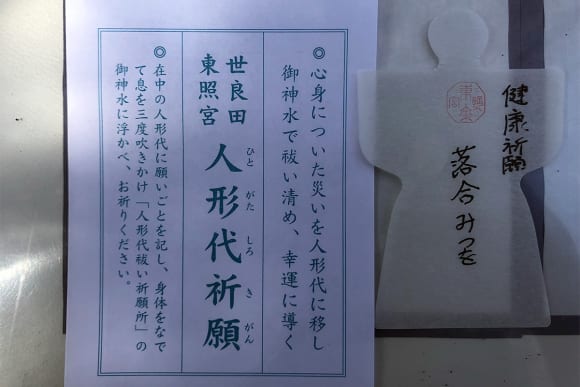 ◎心身についた災いを人形代に移し
御神水で祓い清め、幸運に導く
世良田
東照宮
人形代祈願
ひとがたしろきがん
◎在中の人形代に願いごとを記し、身体をなで
て息を三度吹きかけ「人形代祓い祈願所」の
御神水に浮かべ、お祈りください。
健康祈願
落合みつを